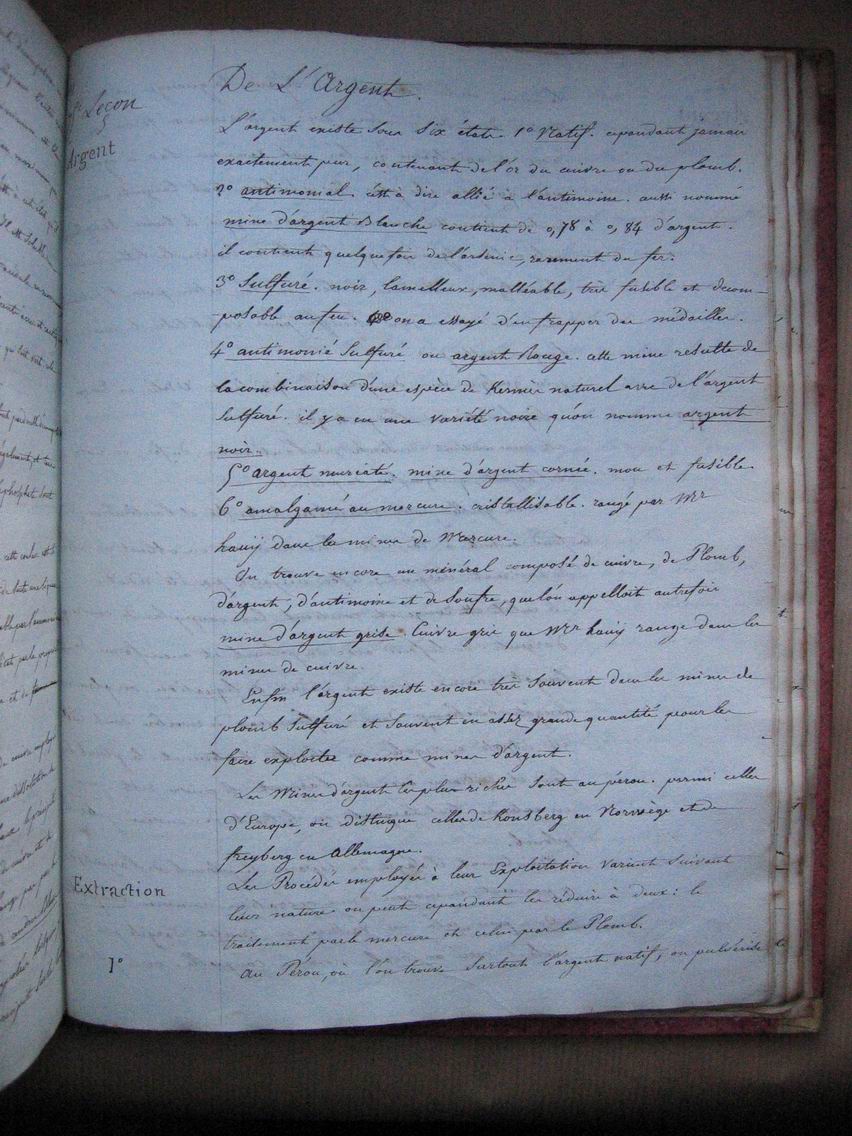 Leçon
De L'Argent.
Argent
L'argent existe sous six états. 1° Natif. cependant jamais
exactement pur, contenant de l'or du cuivre ou du plomb.
2° antimonial c'est à dire allié à l'antimoine. aussi nommé
mine d'argent Blanche contient de 0,78 à 0,84 d'argent.
il contient quelquefois de l'arsenic, rarement du fer.
3° Sulfuré. noir, lamelleux, malléable, très fusible et decom-
posable au feu. on a essayé d'en frapper des médailles.
4° antimonié Sulfuré ou argent Rouge. cette mine resulte de
la combinaison d'une espèce de Kermes naturel avec de l'argent
Sulfuré. il y a eu une variété noire qu'on nomme argent
noir.
5° argent muriaté. mine d'argent cornée. mou et fusible.
6° amalgamé au mercure. cristallisable. rangé par Mr
hauij dans les mines de Mercure.
On trouve encore un minéral composé de cuivre, de Plomb,
d'argent, d'antimoine et de Soufre, que l'on appelloit autrefois
mine d'argent grise. Cuivre gris que Mr hauij range dans les
mines de cuivre.
Enfin l'argent existe encore très souvent dans les mines de
plomb Sulfuré et Souvent en assez grande quantité pour les
faire exploiter comme mines d'argent.
Les Mines d'argent les plus riches sont au pérou. parmi celles
d'Europe, on distingue celles de Konsberg en Norwège et de
freyberg en Allemagne.
Extraction
Les Procédés employés à leur Exploitation varient suivant
leur nature on peut cependant les réduire à deux: le
traitement par le mercure et celui par le Plomb.
1°
Au Pérou, où l'on trouve surtout l'argent natif, on pulvérise